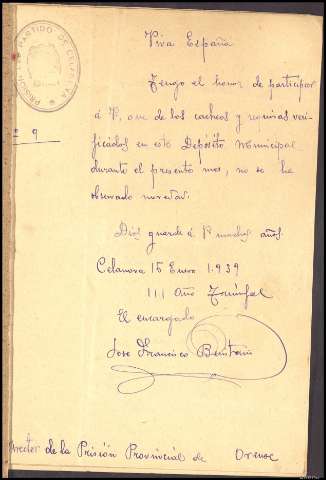 PRISION DE PARTIDO DE CELANOVA
º 9
Viva España
Tengo el honor de participar
á V, que de los cacheos y requisas veri-
ficados en este Depósito Municipal
durante el presente mes, no se ha
observado novedad.
Dios guarde á V muchos años.
Celanova 15 Enero 1.939
III Año Triunfal
El encargado
Jose Francisco
irector de la Prisión Provincial de Orense